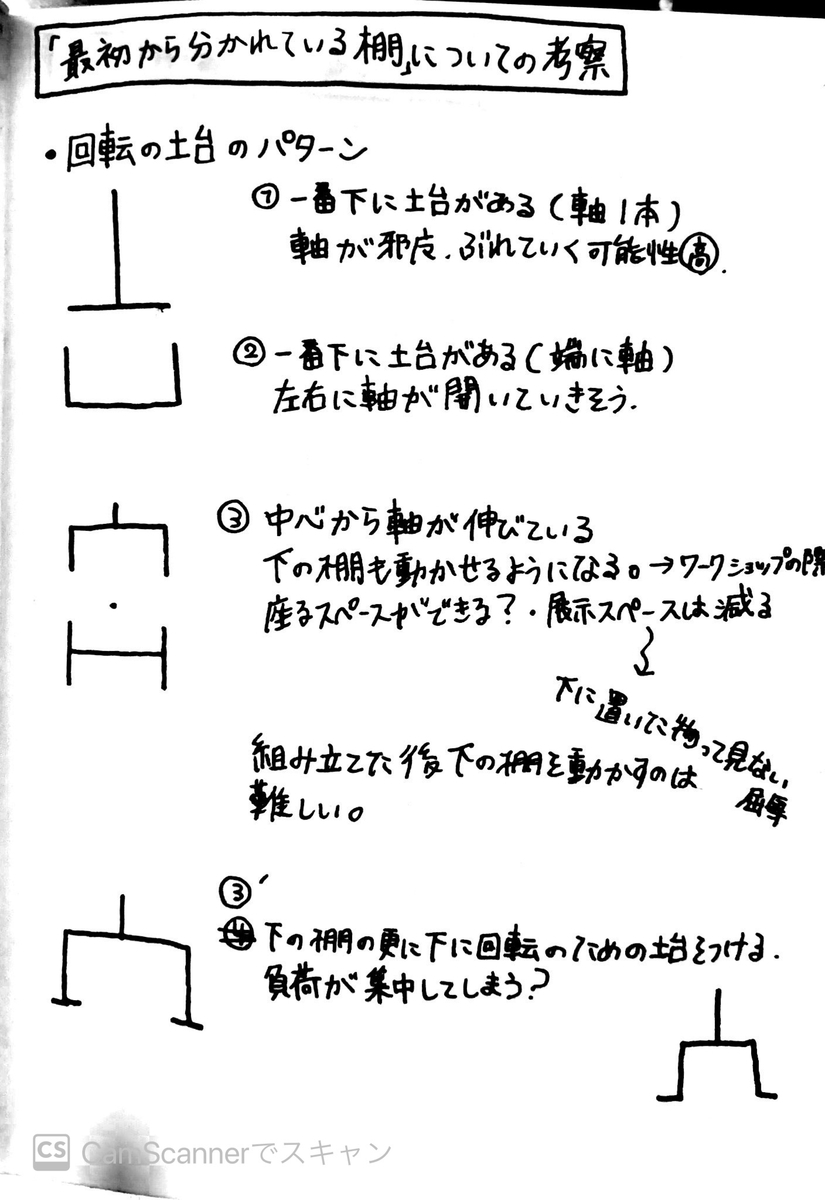 「最初から分かれている棚」についての考察
・回転の土台のパターン
① 一番下に土台がある(軸1本)
軸が邪广、ぶれていく可能性高.
② 一番下に土台がある(端に軸)
左右に軸が開いていきそう.
③ 中心から軸が伸びている
下の棚も動かせるようになる。→ワークショップの際
座るスペースができる?・展示スペースは減る
下に置いた物って見ない
屈辱
組み立てた後下の棚を動かすのは
難しい。
③´
④ 下の棚の更に下に回転のための土台をつける.
負荷が集中してしまう?
CS CamScannerでスキャン